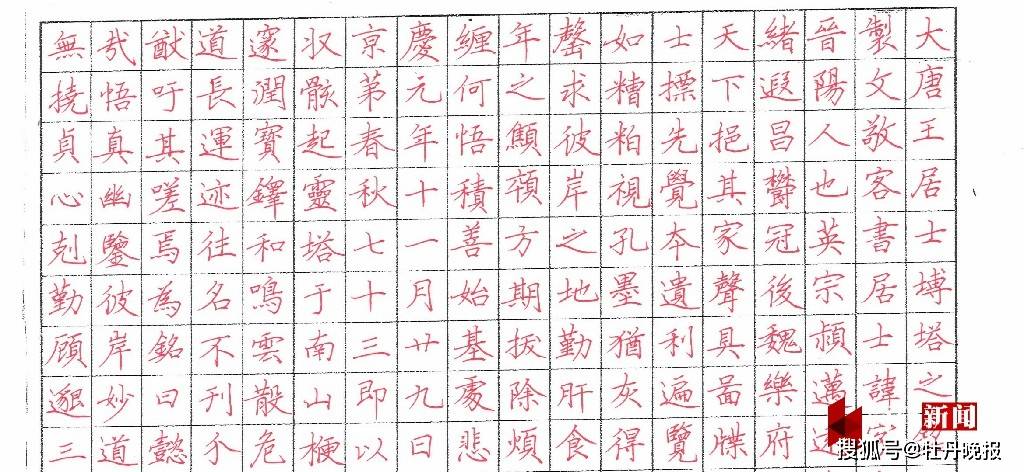 大唐王居士塼塔之
製文敬客書居士諱
晉陽人也英宗頴邁
緒遐昌欝冠後魏樂府
天下挹其家聲具啚牒
士摽先覺夲遺利遍覽
如糟粕視孔墨猶灰得
罄求彼岸之地勤肝食
年之顯頟方期拔除煩
纏何悟積善始基處悲
慶元年十一月廿九日
京苐春秋七十三即以
収骸起靈塔于南山楩
邃潤寳鐸和鳴雲散危
道長運迹往名不刊不
猷吁其嗟焉為銘曰懿
哉悟真幽鑒彼岸妙道
無撓貞心剋勤顧邈三
新闻
搜狐号@牡丹晚报